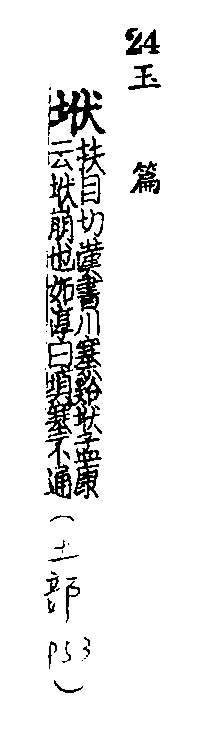 24
玉篇
垘
扶目切漢書川塞谿垘孟康
云垘崩也如淳曰填塞不通
(土部 P53)